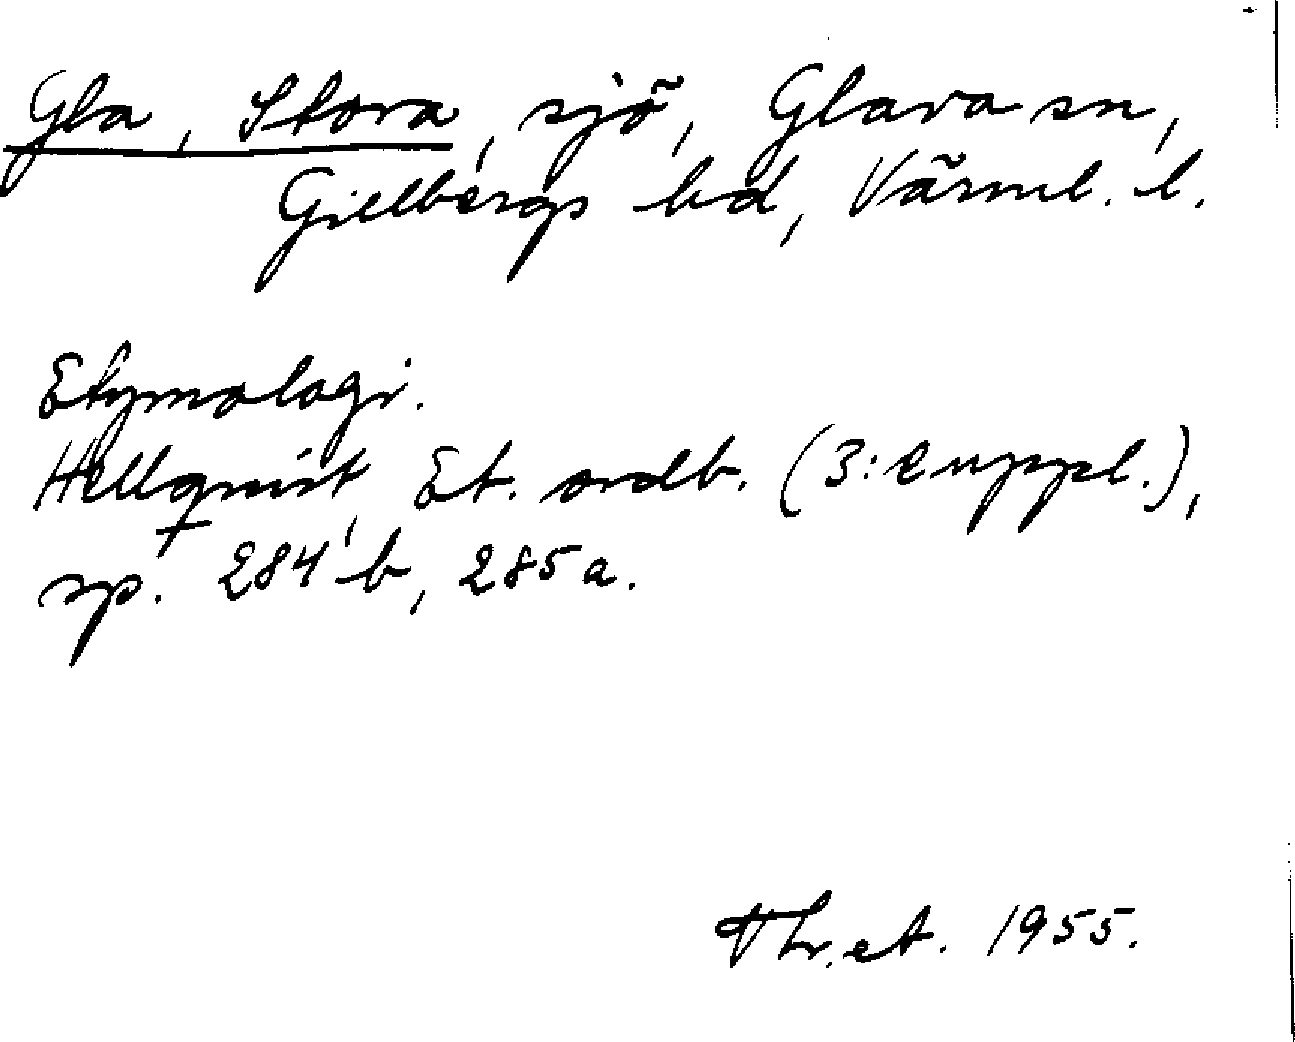 Gla, Stora, sjö, Glava sn,
Gillbergs hd, Värml. l.
Etymologi.
Hellquist, Et. ordb. (3:e uppl.),
sp. 284 b, 285 a.
1955.